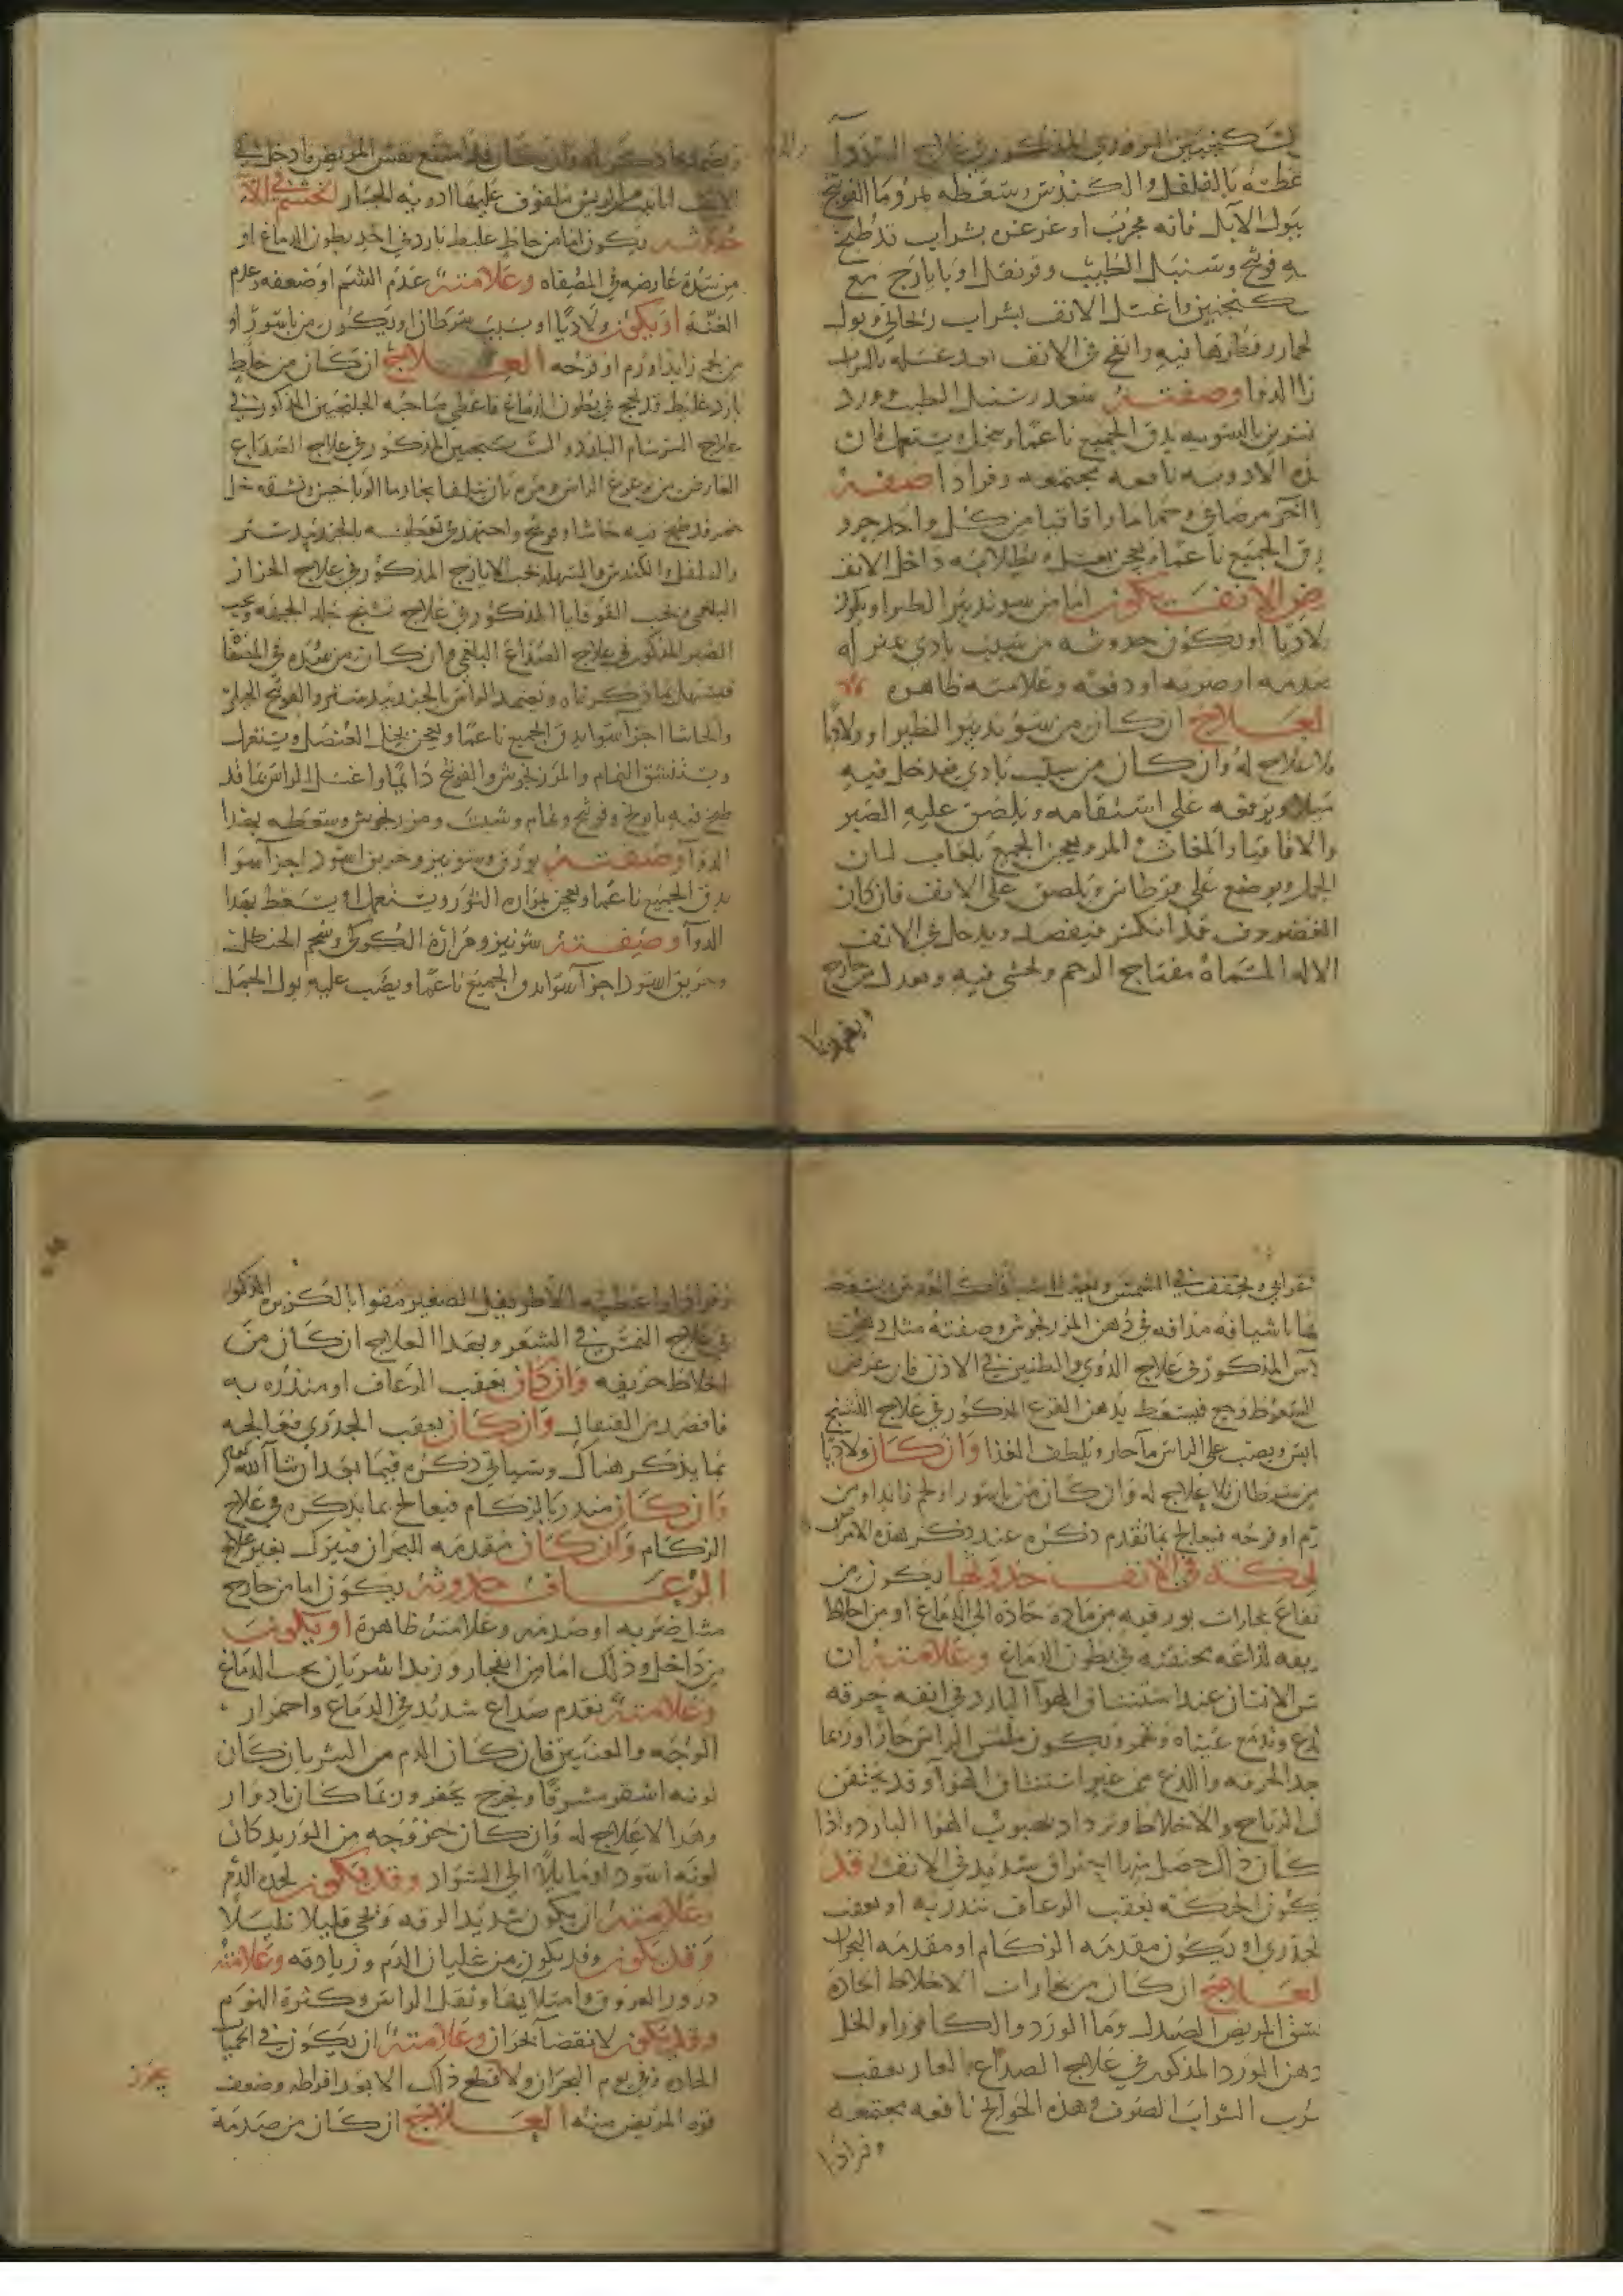 السكنجبين البزوري المذكور في علاج السدد او
عطسه بالفلفل والكندس وسعطه بمر وما الفوتنج
ببول الابل فانه مجرب او غرغره بشراب قد طبخ
فيه فوتنج وسنبل الطيب وقرنفل او بايارج مع
سكنجبين واغسل الانف بشراب ريحاني وبول
الحمار وقطرها فيه وانفخ في الانف بعد غسله بالشراب
هذا الدوا وصفته سعد وسنبل الطيب وورد
نسرين بالسويه يدق الجميع ناعما وينخل ويستعمل فان
هذه الادويه نافعه مجتمعه وفرادا صفة
دوا اخر مر صافي وحماما واقاقيا من كل واحد جزو
يدق الجميع ناعما ويعجن بعسل ويطلا به داخل الانف
رض الانف يكون اما من سو تدبير الظير او يكون
ولاديا او يكون حدوثه من سبب بادي عنر له
صدمه او ضربه او دفعه وعلامته ظاهره
العلاج ان كان من سوء تدبير الظير او ولاديا
فلا علاج له وان كان من سبب بادي فيدخل فيه
ميلا ويرفعه علي استقامه ويلصق عليه الصبر
والاقاقيا والمغاث والمر ويعجن الجميع بلعاب لسان
الحمل ويوضع علي قرطاس ويلصق علي الانف فان كان
الغضروف قد انكسر فيفصد ويدخل في الانف
الاله المسماة مفتاح الرحم ويحشي فيه ويعدل من خارج
ويضمد بما
ويضمد بما ذكرناه وان كان قد امتنع نفس المريض فادخل في
الانف انابيب الريش ملفوف عليها ادويه الجبار الخشم في الانف
حدوثه يكون اما من خلط غليظ بارد في احد بطون الدماغ او
من سدة عارضه في المصفاه وعلامته عدم الشم او ضعفه وعدم
الغنة او يكون ولاديا او بسبب سرطان او يكون من باسور او
من لحم زايد او ورم او قرحه العلاج ان كان من خلط
بارد غليظ قد لحج في بطون الدماغ فاعطي صاحبه الجلنجبين المذكور في
علاج السرسام البارد والسكنجبين المذكور في علاج الصداع
العارض من نوعي الراس ومره بان يتلقا بخار وما الرياحين ونشقه خل
خمر قد طبخ فيه حاشا وفوتنج واجتهد في تعطيسه بالجندبيدستر
والفلفل والكندس واسهله بحب الايارج المذكور في علاج الحزاز
البلغمي وبحب القوقايا المذكور في علاج تشنج جلد الجبهه وبحب
الصبر المذكور في علاج الصداع البلغمي وان كان من سدة في المصفاة
فيسهل بما ذكرناه ويضمد الراس بالجندبيدستر والفوتنج الجبلي
والحاشا اجزآ سوا يدق الجميع ناعما ويعجن بخل العنصل ويتغرغر
ويستنشق النمام والمرزنجوش والفوتنج دائما واغسل الراس بما قد
طبخ فيه بابونج وفوتنج ونمام وشبت ومرزنجوش وسعطه بهذا
الدوآ وصفته بورق وشونيز وخربق اسود اجزآ سوا
يدق الجميع ناعما ويعجن بمرارة الثور ويستعمل او يسعط بهذا
الدوآ وصفته شونيز ومرارة الكركي وشحم الحنظل
وخربق اسود اجزآ سوا يدق الجميع ناعما ويصب عليه بول الجمل
ويجفف في الشمس
بها اشيافه مذافه في دهن المرزنجوش وصفته مثل دهن
الاس المذكور في علاج الدوي والطنين في الاذن فان عرض
السعوط وهج فيسعط بدهن القرع المذكور في علاج التشنج
اليابس ويصب على الراس مآ حار ويلطف الغذا وان كان ولاديا
او من سرطان فلا علاج له وان كان من باسور او لحم زايد او من
ورم او قرحه فيعالج بما تقدم ذكره عند ذكر هذه الامراض
الحكة في الانف حدوثها يكون من
ارتفاع بخارات بورقيه من مادة حادة الي الدماغ او من اخلاط
حريفه لذاعه محتقنه في بطون الدماغ وعلامته ان
يحس الانسان عند استنشاق الهوآ البارد في انفه حرقه
ولذع وتدمع عيناه وتحمر ويكون ملمس الراس حارا وربما
يجد الحرقه والذع من غير استنشاق الهوآ وقد يحتقن
تلك الرياح والاخلاط وتزداد بهبوب الهوا البارد واذا
كان ذلك حصل منها احتراق شديد في الانف وقد
يكون الحكة بعقب الرعاف تنذر به او بعقب
الجدري او يكون مقدمه الزكام او مقدمه البحران
العلاج ان كان من بخارات الاخلاط الحادة
فنشق المريض الصندل وما الورد والكافور او الخل
ودهن الورد المذكور في علاج الصداع العارض بعقب
شرب الشراب الصرف وهذه الحوايج نافعه مجتمعه
وفرادا
وفرادا واعطيه الاطريفل الصغير مقوا بالكزبره المذكور
في علاج النمش في الشعر وبهذا العلاج ان كان من
اخلاط حريفه وان كان بعقب الرعاف او منذره به
فافصد من القيفال وان كان بعقب الجدري فعالجه
بما يذكر هناك وسياتي ذكره فيما بعد ان شآ الله تعالى
وان كان منذرا بالزكام فيعالج بما يذكر في علاج
الزكام وان كان مقدمه البحران فيترك بغير علاج
الرعاف حدوثه يكون اما من خارج
مثل ضربه او صدمه وعلامته ظاهرة او يكون
من داخل وذلك اما من انفجار وريد او شريان بحجب الدماغ
وعلامته تقدم صداع شديد في الدماغ واحمرار
الوجه والعينين فان كان الدم من الشريان كان
لونه اشقر مشرقا ويخرج بحفز وربما كان بادوار
وهذا لا علاج له وان كان خروجه من الوريد كان
لونه اسود او مايلا الي السواد وقد يكون لحدة الدم
وعلامته ان يكون شديد الرقه ويجي قليلا قليلا
وقد يكون وقد يكون من غليان الدم وزيادته وعلامته
درور العروق وامتلايها وثقل الراس وكثرة النوم
وقد يكون لانقضآ بحران وعلامته ان يكون في الحميات
الحاده وفي يوم البحران ولا يقطع ذلك الا بعد افراطه وضعف
قوه المريض منه العلاج ان كان من صدمة